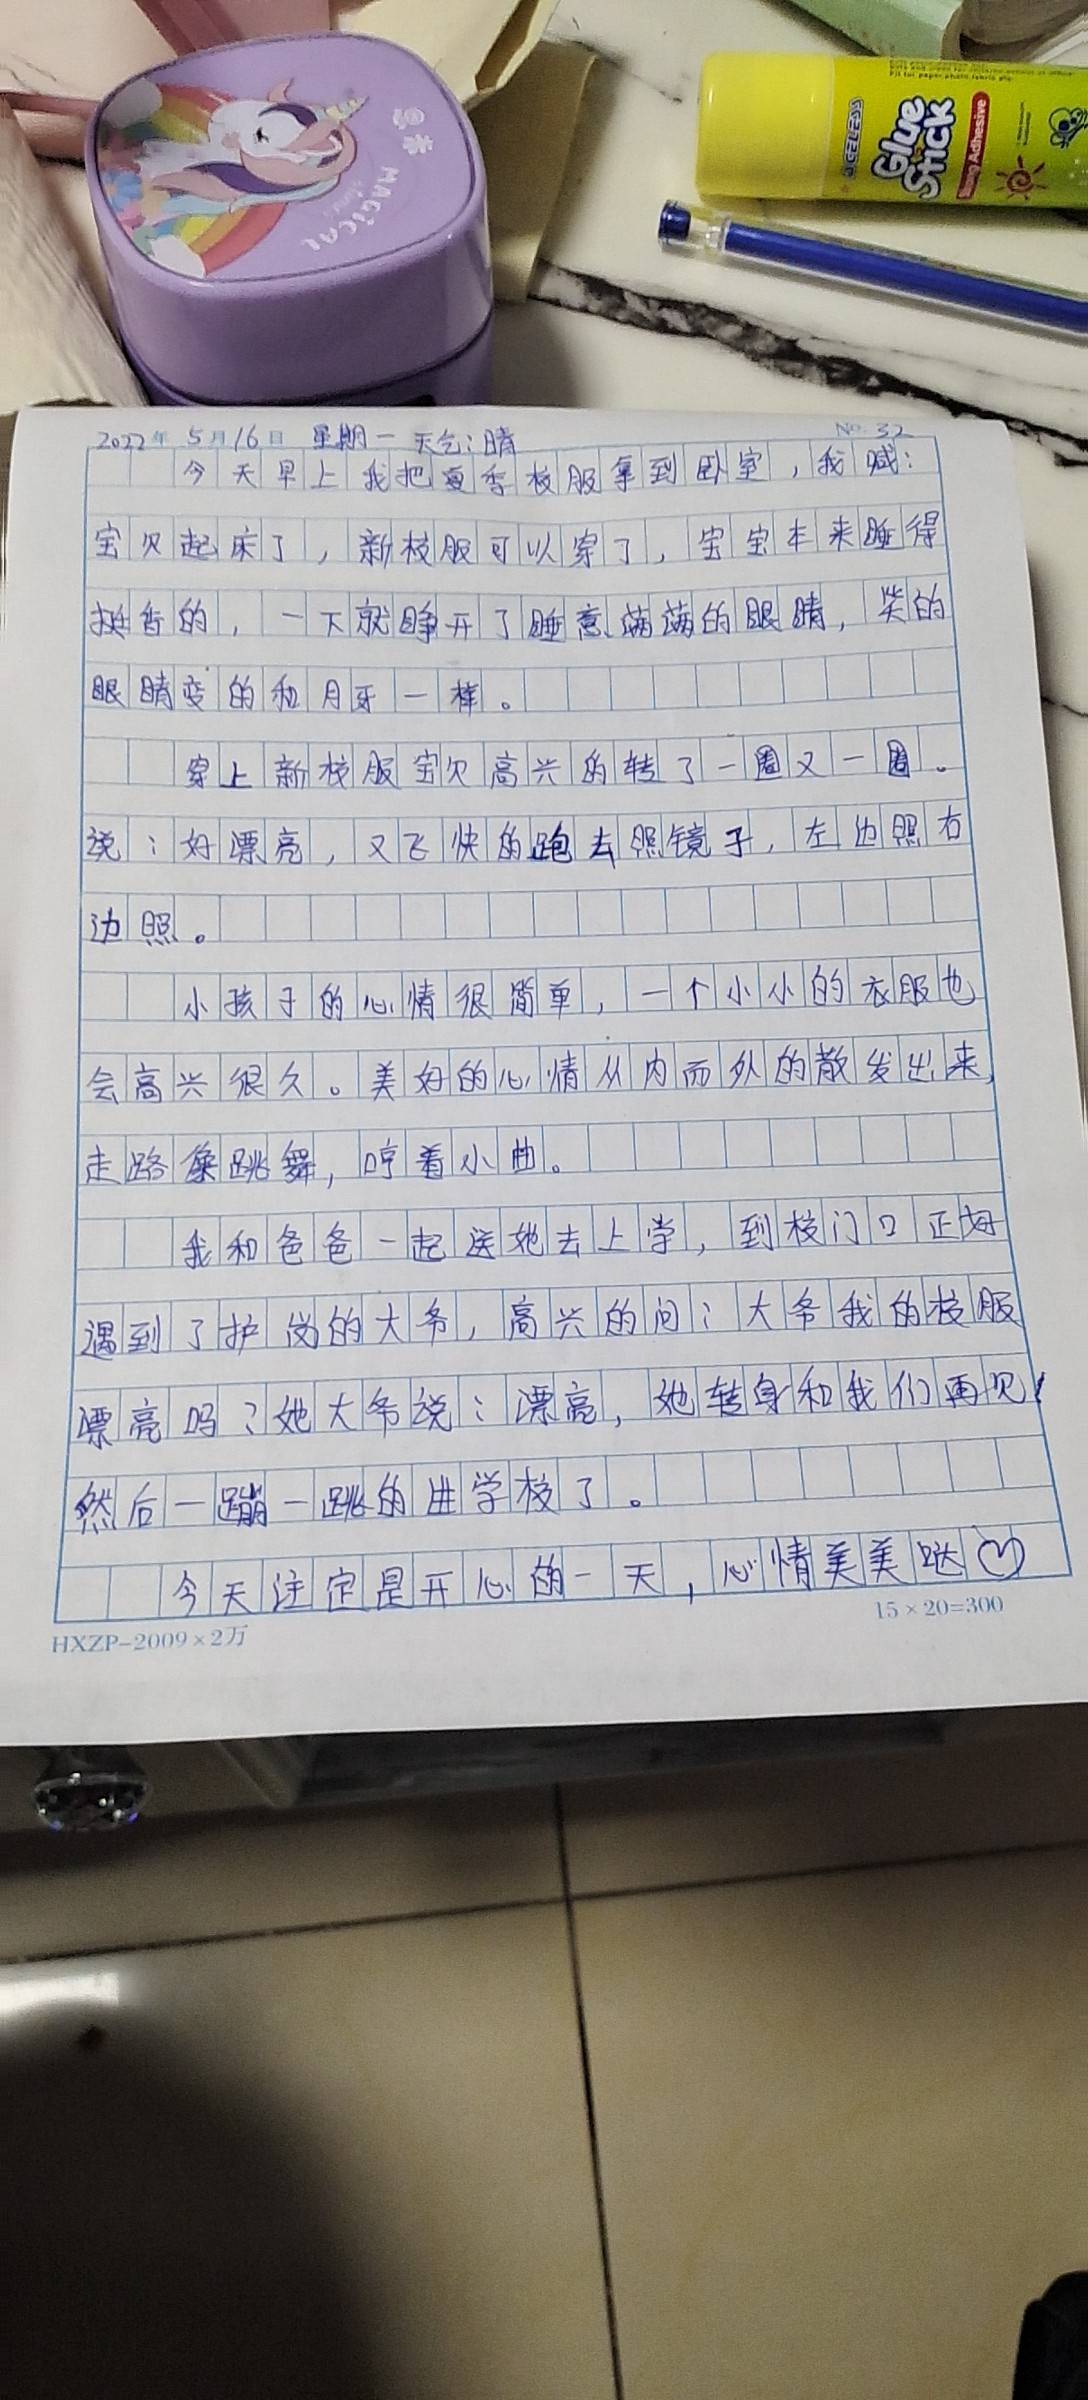 MAGICAL
GELEISY
Glue Stick
Strong Adhesive
2022年 5月16日 星期一 天气:晴
No. 32
今天早上我把夏季校服拿到卧室,我喊:
宝贝起床了,新校服可以穿了,宝宝本来睡得
挺香的,一下就睁开了睡意满满的眼睛,笑的
眼睛变的和月牙一样。
穿上新校服宝贝高兴的转了一圈又一圈。
说:好漂亮,又飞快的跑去照镜子,左边照右
边照。
小孩子的心情很简单,一个小小的衣服也
会高兴很久。美好的心情从内而外的散发出来,
走路像跳舞,哼着小曲。
我和爸爸一起送她去上学,到校门口正好
遇到了护岗的大爷,高兴的问:大爷我的校服
漂亮吗?她大爷说:漂亮,她转身和我们再见!
然后一蹦一跳的进学校了。
今天注定是开心的一天,心情美美哒
15×20=300
HXZP-2009×2万